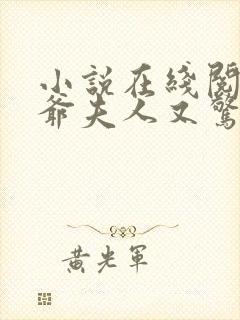 小說在綫閱
爺夫人又驚
黃光軍